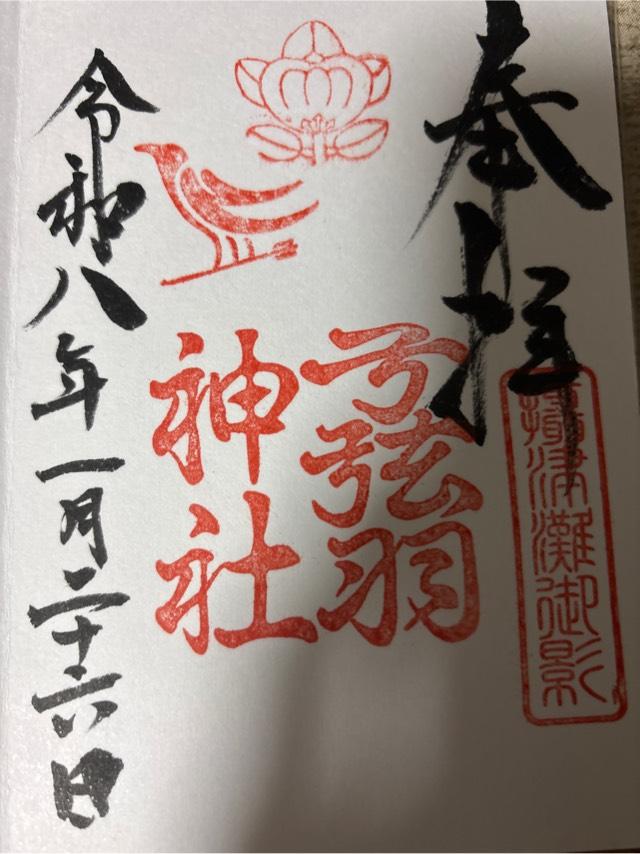 奉拝
摂津灘御影
弓弦羽
神社
令和八年一月二十六日